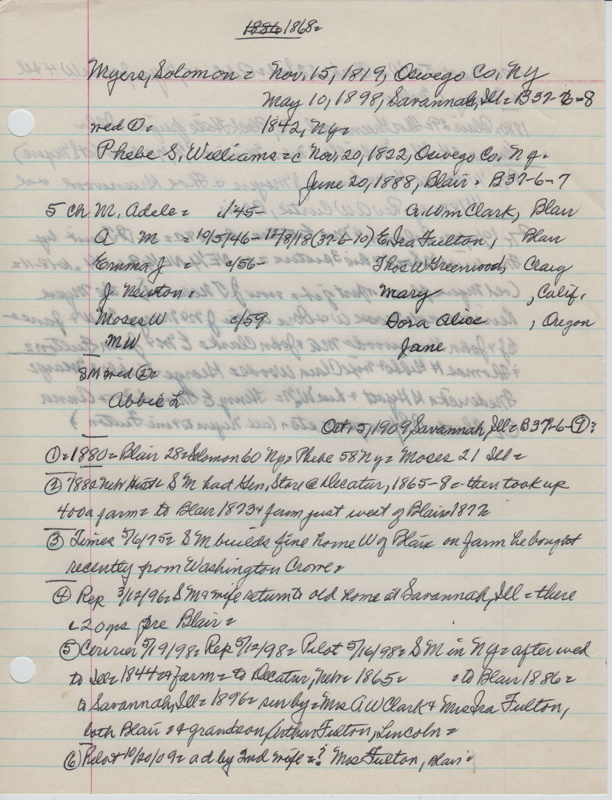 1886 1868=
Myers, Solomon = Nov. 15, 1819, Oswego Co, Ny
May 10, 1898, Savannah, Ill = B37-6-8
wed ①= 1842, Ny=
Phebe S. Williams = c Nov. 20, 1822, Oswego Co. Ny.
June 20, 1888, Blair. B37-6-7
5 ch M. Adele = c/45- A. Wm Clark, Blair
A M = 10/5/46- 12/8/18 (37-6-10) Ezra Fulton, Blair
Emma J = c/56- Thos W Greenwood, Craig
J. Newton. Mary , Calif.
Moses W c/59 Dora Alice , Oregon
MW Jane
SM wed ②=
Abbie L
Oct. 5, 1909, Savannah, Ill = B37-6-⑨?
①=1880= Blair 28= Solomon 60 Ny= Phebe 58 Ny= Moses 21 Ill=
② 1882 Nebr Hist= SM had Gen. Store @ Decatur, 1865-8= then took up
400a farm = to Blair 1873 & farm just west of Blair 1877=
③ Times 5/6/75= SM builds fine home W of Blair on farm he bought
recently from Washington Crowe=
④ Rep 3/12/96= SM & wife return to old home at Savannah, Ill = there
20 yrs pre Blair=
⑤ Courier 5/19/98= Rep 5/12/98= Pilot 5/16/98= SM in Ny= after wed
to Ill= 1844 & farm = to Decatur, Nebr= 1865 = to Blair 1886=
to Savannah, Ill = 1896= surv by = Mrs A W Clark & Mrs Ira Fulton,
both Blair & grandson Arthur Fulton, Lincoln=
⑥ Pilot 10/20/09= ad by 2nd wife=? Mrs Fulton, Blair=